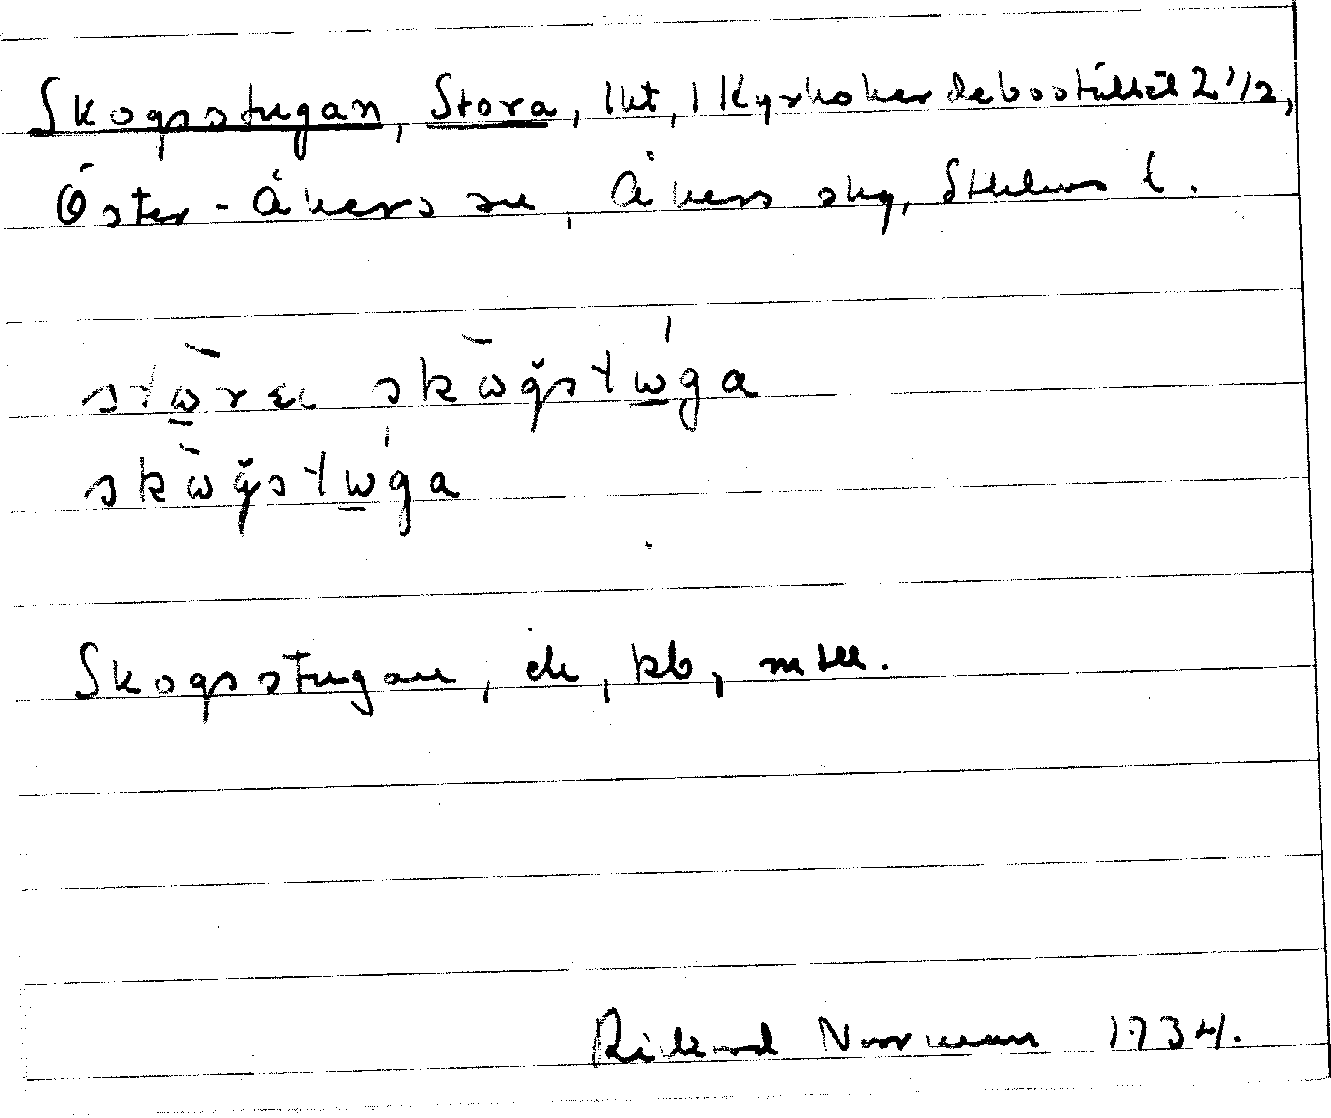 Skogsstugan, Stora, lht, 1 Kyrkoherdebostället 2 1/2,
Öster-Åkers sn, Åkers skg, Sthlms l.
stⱳ̀ra skⱳ̀gstⱳ́ga
skⱳ̀gstⱳ́ga
Skogsstugan, ek, kb, mtll.
Rickard Norrman 1934.